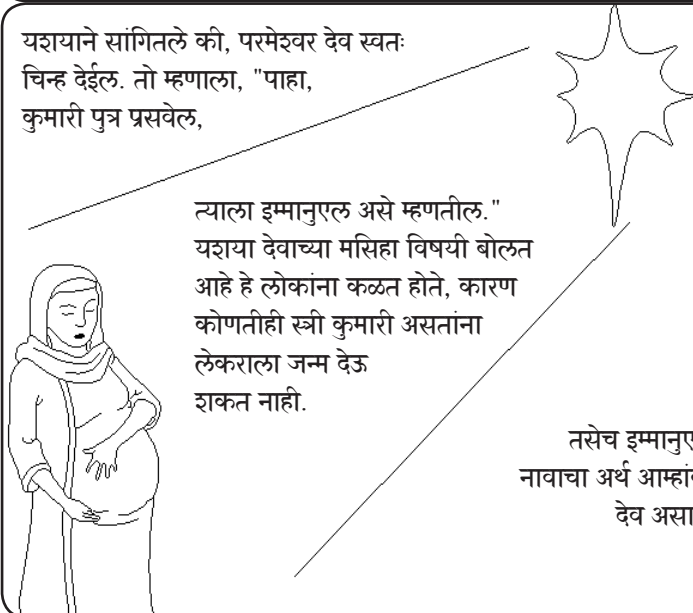 यशयाने सांगितले की, परमेश्वर देव स्वतः
चिन्ह देईल. तो म्हणाला, "पाहा,
कुमारी पुत्र प्रसवेल,
त्याला इम्मानुएल असे म्हणतील."
यशया देवाच्या मसिहा विषयी बोलत
आहे हे लोकांना कळत होते, कारण
कोणतीही स्त्री कुमारी असतांना
लेकराला जन्म देऊ
शकत नाही.
तसेच
नावाचा अर्थ
देव